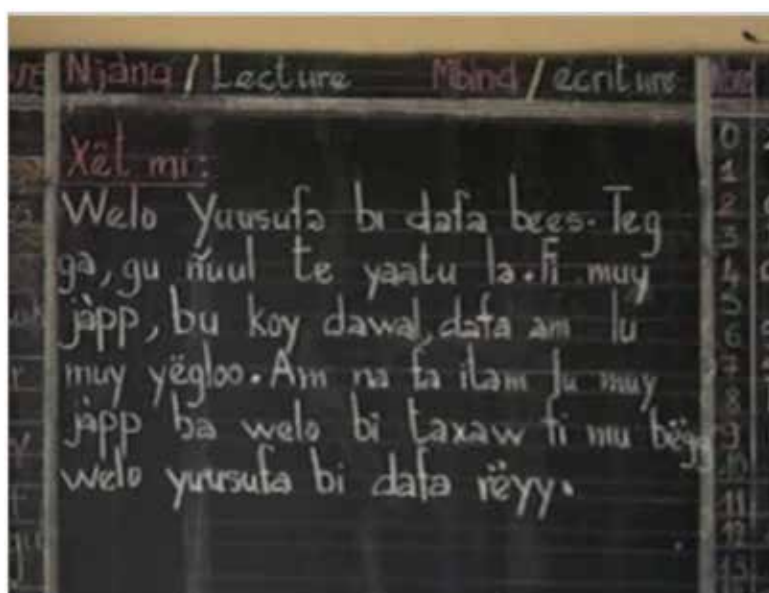 Njàng / Lecture Mbind / ecriture
Xët mi:
Welo Yuusufa bi dafa bees. Teg
ga, gu ñuul te yaatu la. Fi muy
jàpp, bu koy dawal, dafa am lu
muy yëgloo. Am na fa itam lu muy
jàpp ba welo bi taxaw fi mu bëgg
welo yuusufa bi dafa rëyy.
0
1
2
3
4
5
6
7
8
9
10
11
12
13